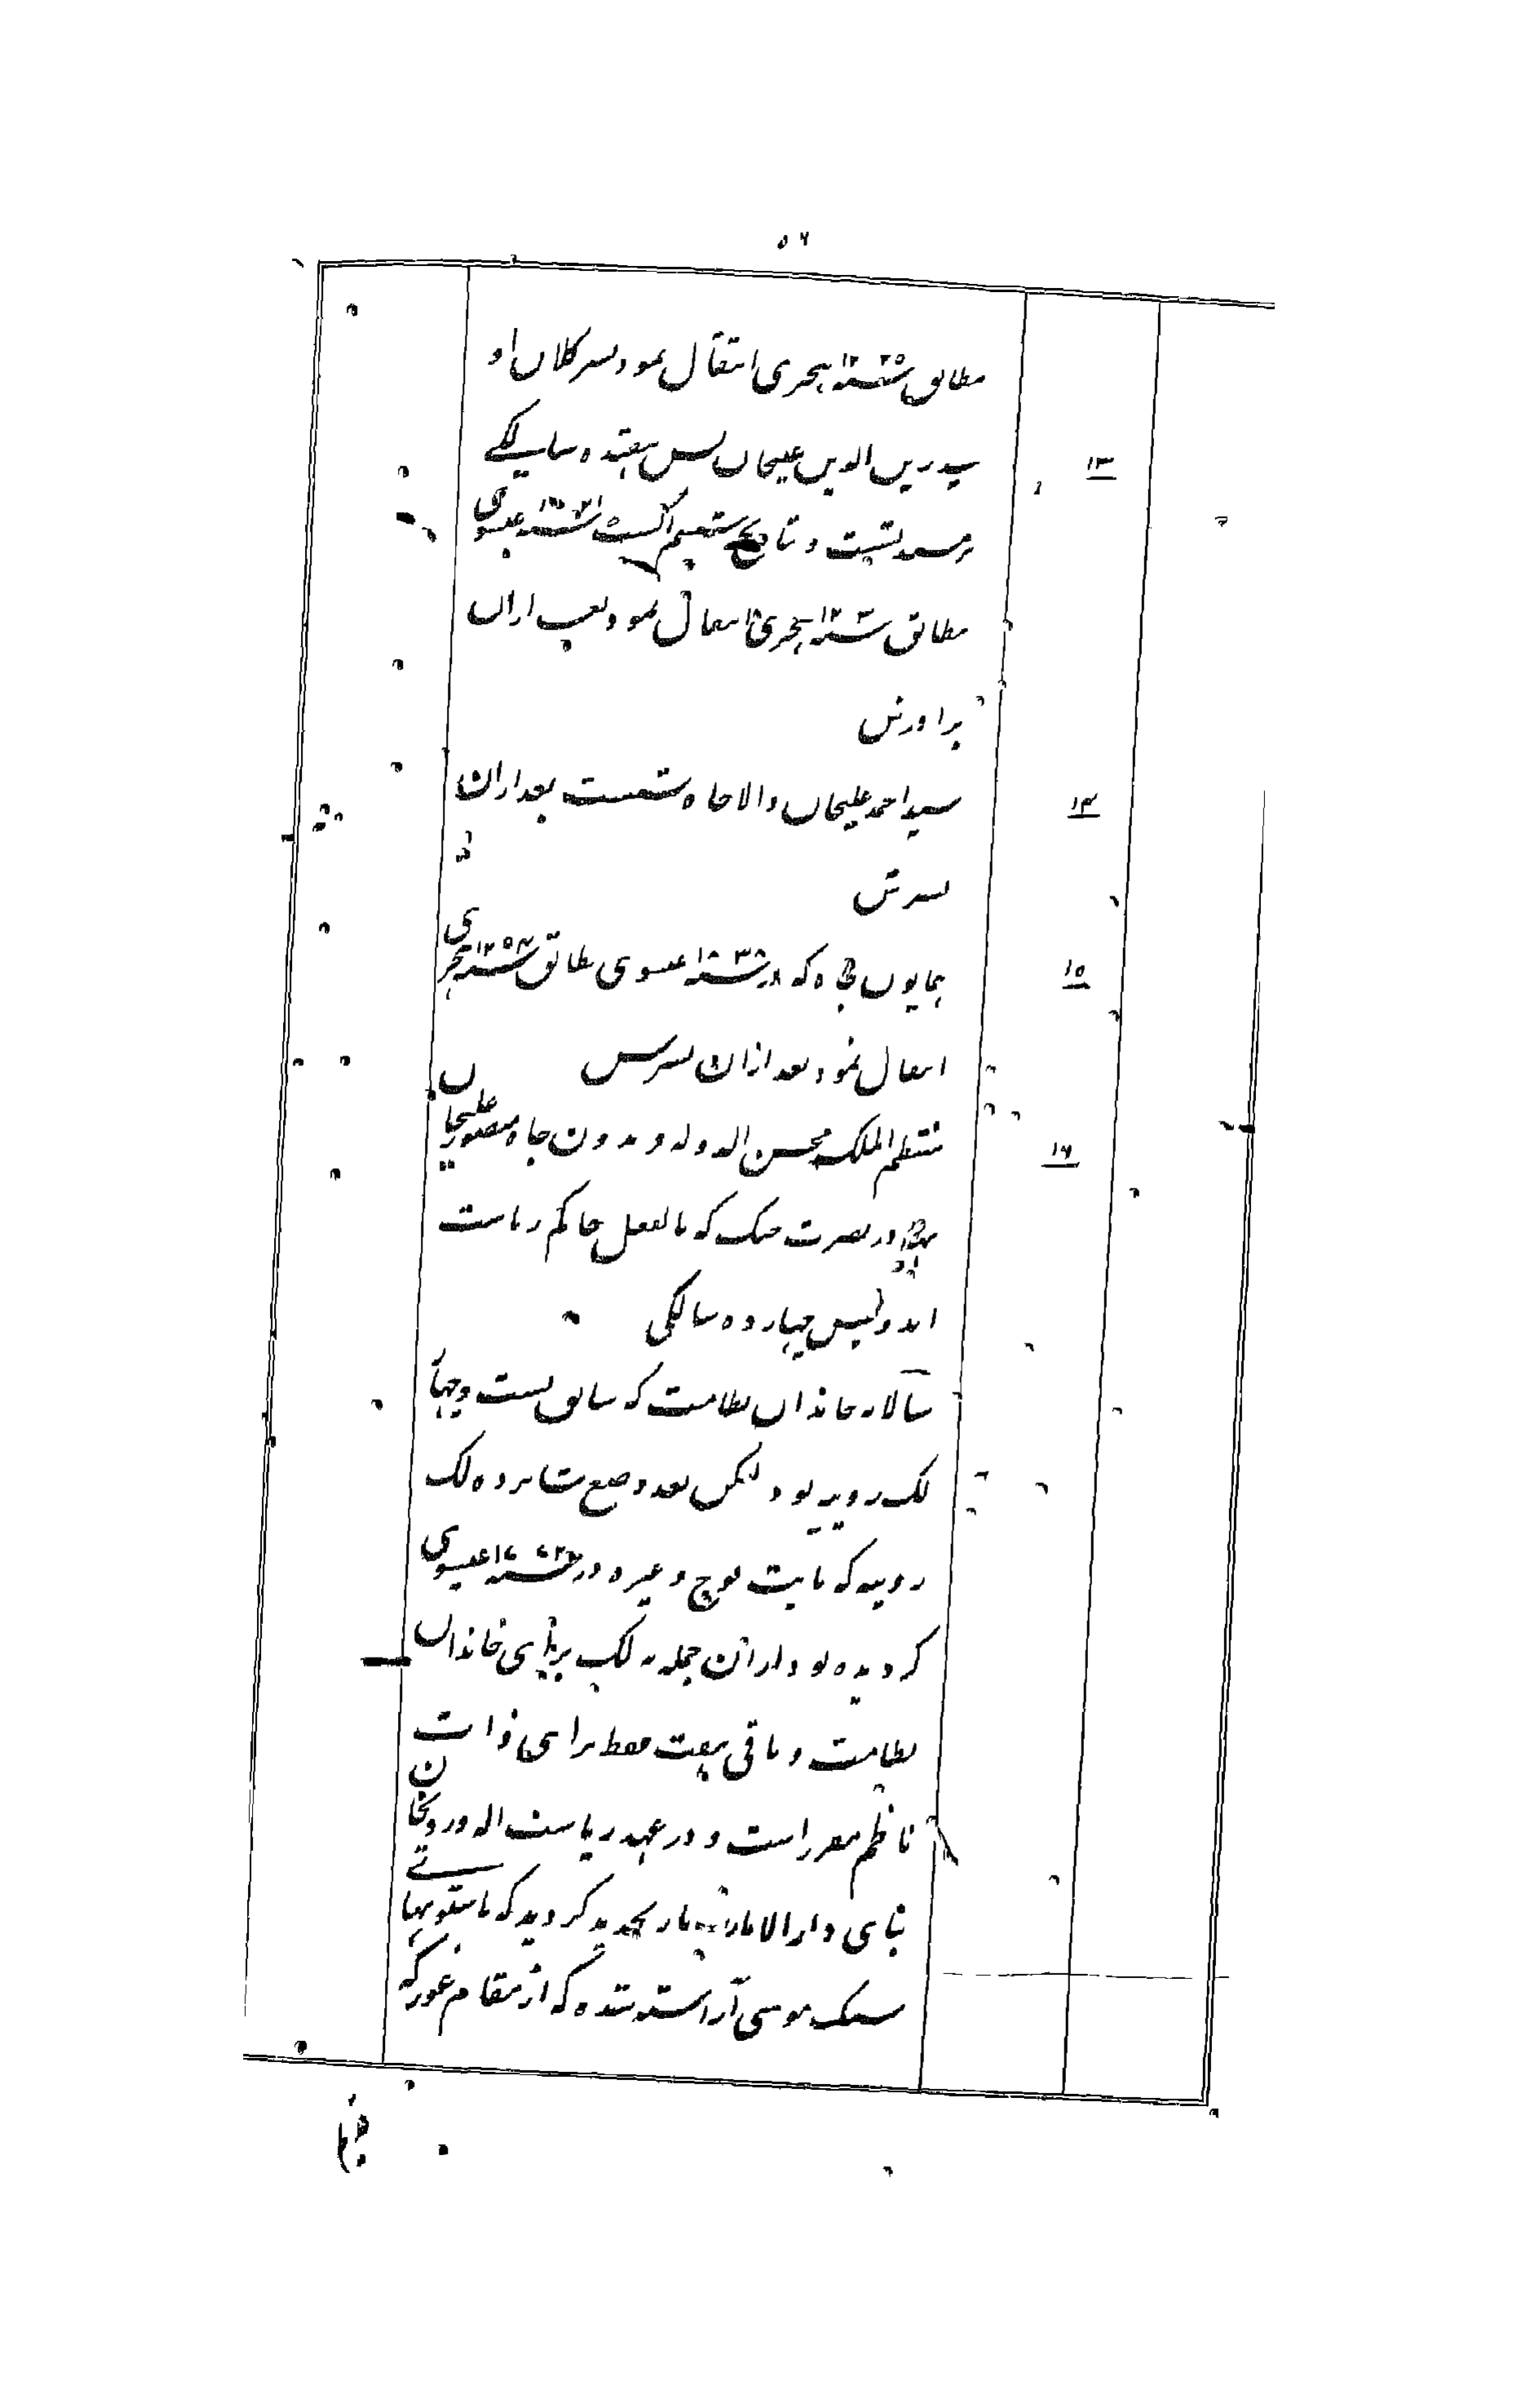 ٥٦
مطابق سنه ١٢٢٥ هجری انتقال نمود پسر کلان او
١٣
سید زین الدین علیخان بسن هفده سالگے
برمسند نشست و بتاریخ ششم اگست سنه ١٨٢١ عیسوی
مطابق سنه هجری انتقال نمود بعد ازان
برادرش
١٤
سید احمد علیخان والاجاه نشست بعد ازان
پسرش
١٥
همایون جاه که در سنه ١٨٣٨ عیسوی مطابق سنه ١٢٥٤ هجری
انتقال نمود بعد ازان پسرش
١٦
منتظم الملک محسن الدوله فریدون جاه منصور علیخان
بهادر نصرت جنگ که بالفعل حاکم ریاست
اند و بسن چهارده سالگی
سالانه خاندان نظامت که سابق بست و چهار
لک روپیه بود لیکن بعد وضع شانزده لک
روپیه که بابت فوج و غیره در سنه عیسوی
گردیده بود ازان جمله نه لک برای خاندان
نظامت و باقی هفت فقط برای ذات
ناظم مقرر است و در عهد ریاست اله وردیخان
بنای دارالاماره بار تجدید گردید که باستونهاے
سنگ موسی آراسته شده که از مقام غور که